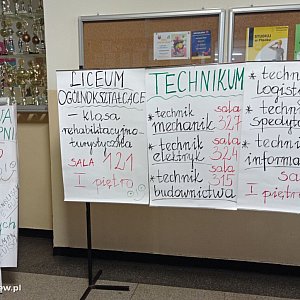 STUDIUJ
LICEUM
OGÓLNOKSZTAŁCĄCE
– klasa
rehabilitacyjno-
turystyczna
SALA 121
I piętro
TECHNIKUM
* technik
mechanik
sala
327
* technik
elektryk
sala
324
* technik
budownictwa
sala
315
* techn
logist
* techn
spedyt
* techni
informa
sala
I piętro
ew.pl